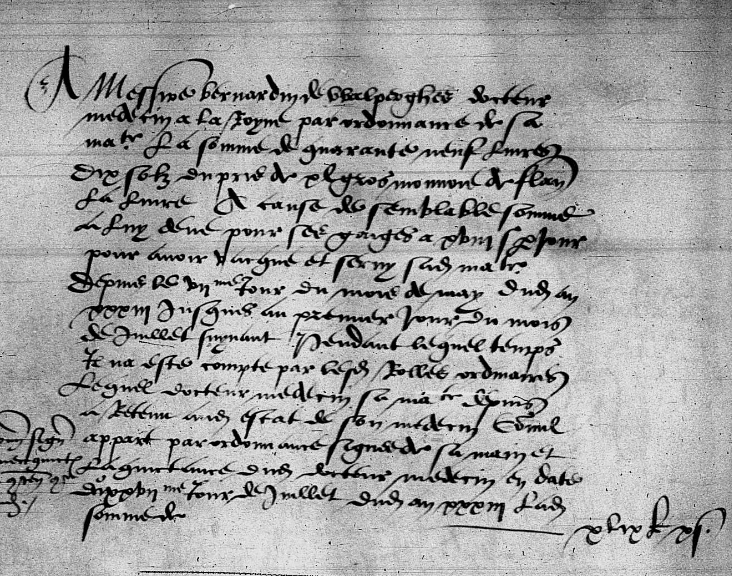 A Messire bernardin de Walperghes docteur
medecin a la Royne par ordonnance de sa
ma.te La somme de quarante neuf Livres
dix solz du pris de xl gros monnoie de flan
La Livre A cause de semblable somme
a luy deue pour ses gaiges a xviii s p Jour
pour avoir vacque et servy sad ma.te
depuis le vii me Jour du mois de may dud an
xxxiii Jusques au premier Jour du mois
de Juillet suyvant Pendant lequel temps
Il na este compte par lesd Rolles ordinaires
Lequel docteur medecin sa ma.te depuis
a Retenu aud estat de son medecin Comme
appert par ordonnance signee de sa main et
La quictance dud docteur medecin en date
du xxvii me Jour de Juillet dud an xxxiii Lad
somme de
xlix L xs.